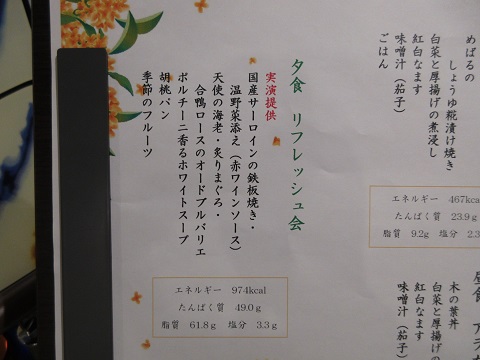 めばるの
しょうゆ糀漬け焼き
白菜と厚揚げの煮浸し
紅白なます
味噌汁（茄子）
ごはん
エネルギー 467kcal
たんぱく質 23.9g
脂質 9.2g 塩分 2.3
夕食 リフレッシュ会
実演提供
国産サーロインの鉄板焼き・
温野菜添え（赤ワインソース）
天使の海老・炙りまぐろ・
合鴨ロースのオードブルバリエ
ポルチーニ香るホワイトスープ
胡桃パン
季節のフルーツ
エネルギー 974kcal
たんぱく質 49.0g
脂質 61.8g 塩分 3.3g
昼食
木の葉丼
白菜と厚揚げの
紅白なます
味噌汁（茄